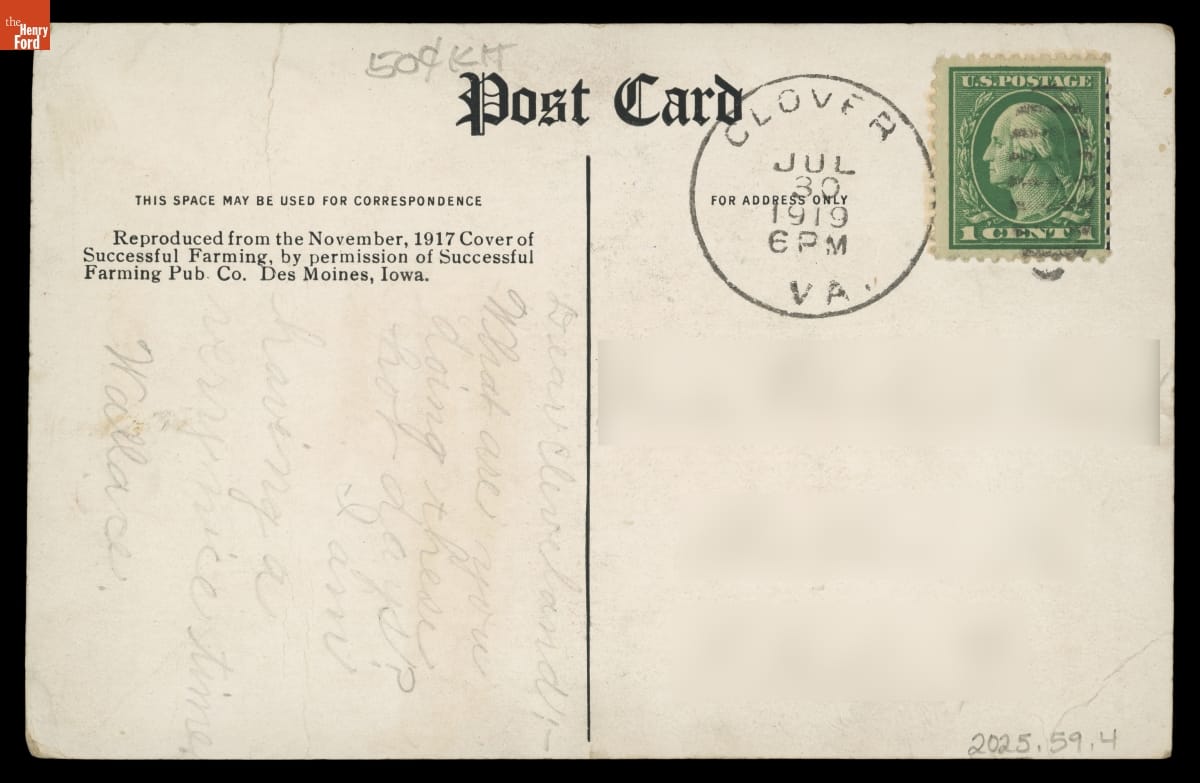 the
Henry
Ford
50¢ KH
Post Card
THIS SPACE MAY BE USED FOR CORRESPONDENCE
FOR ADDRESS ONLY
Reproduced from the November, 1917 Cover of
Successful Farming, by permission of Successful
Farming Pub. Co. Des Moines, Iowa.
CLOVER
JUL
30
1919
6 PM
VA.
U.S. POSTAGE
1 CENT 1
Dear Cleveland:-
What are you
doing these
hot days?
I am
having a
very nice time.
Wallace.
2025.59.4